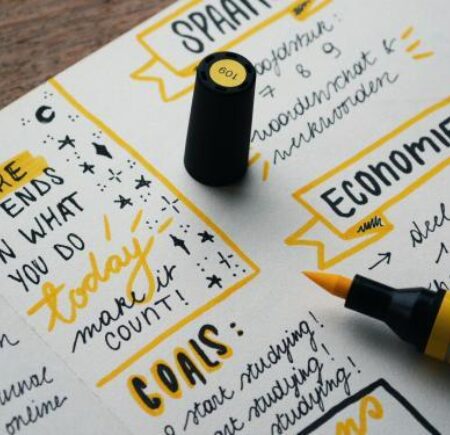 SPAAN
hoofdstuk:
7 8 9
woordenschat &
werkwoorden
109
ENDS
N WHAT
YOU DO
today
make it
COUNT!
ECONOMIE
→ deel
1
GOALS:
start studying!
start studying!
studying!
online